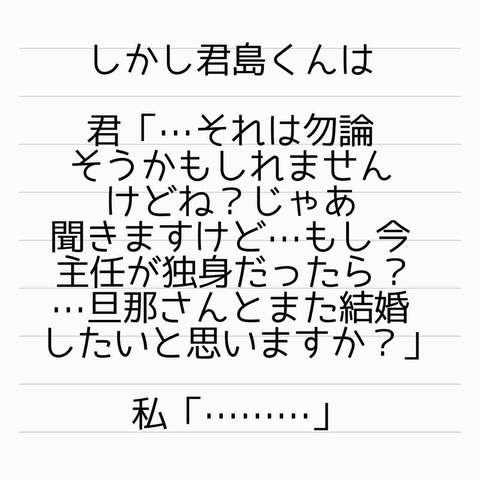 しかし君島くんは
君「…それは勿論
そうかもしれません
けどね？じゃあ
聞きますけど…もし今
主任が独身だったら？
…旦那さんとまた結婚
したいと思いますか？」
私「………」